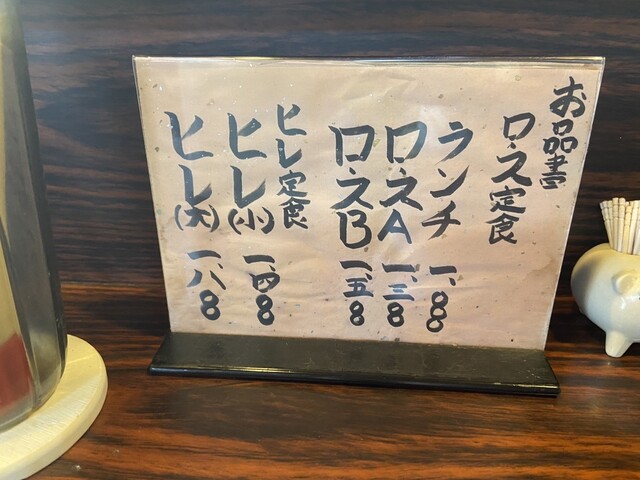 お品書
ロース定食
ランチ 一、〇〇〇
ロースA 一、三〇〇
ロースB 一、五〇〇
ヒレ定食
ヒレ(小) 一、四〇〇
ヒレ(大) 一、八〇〇